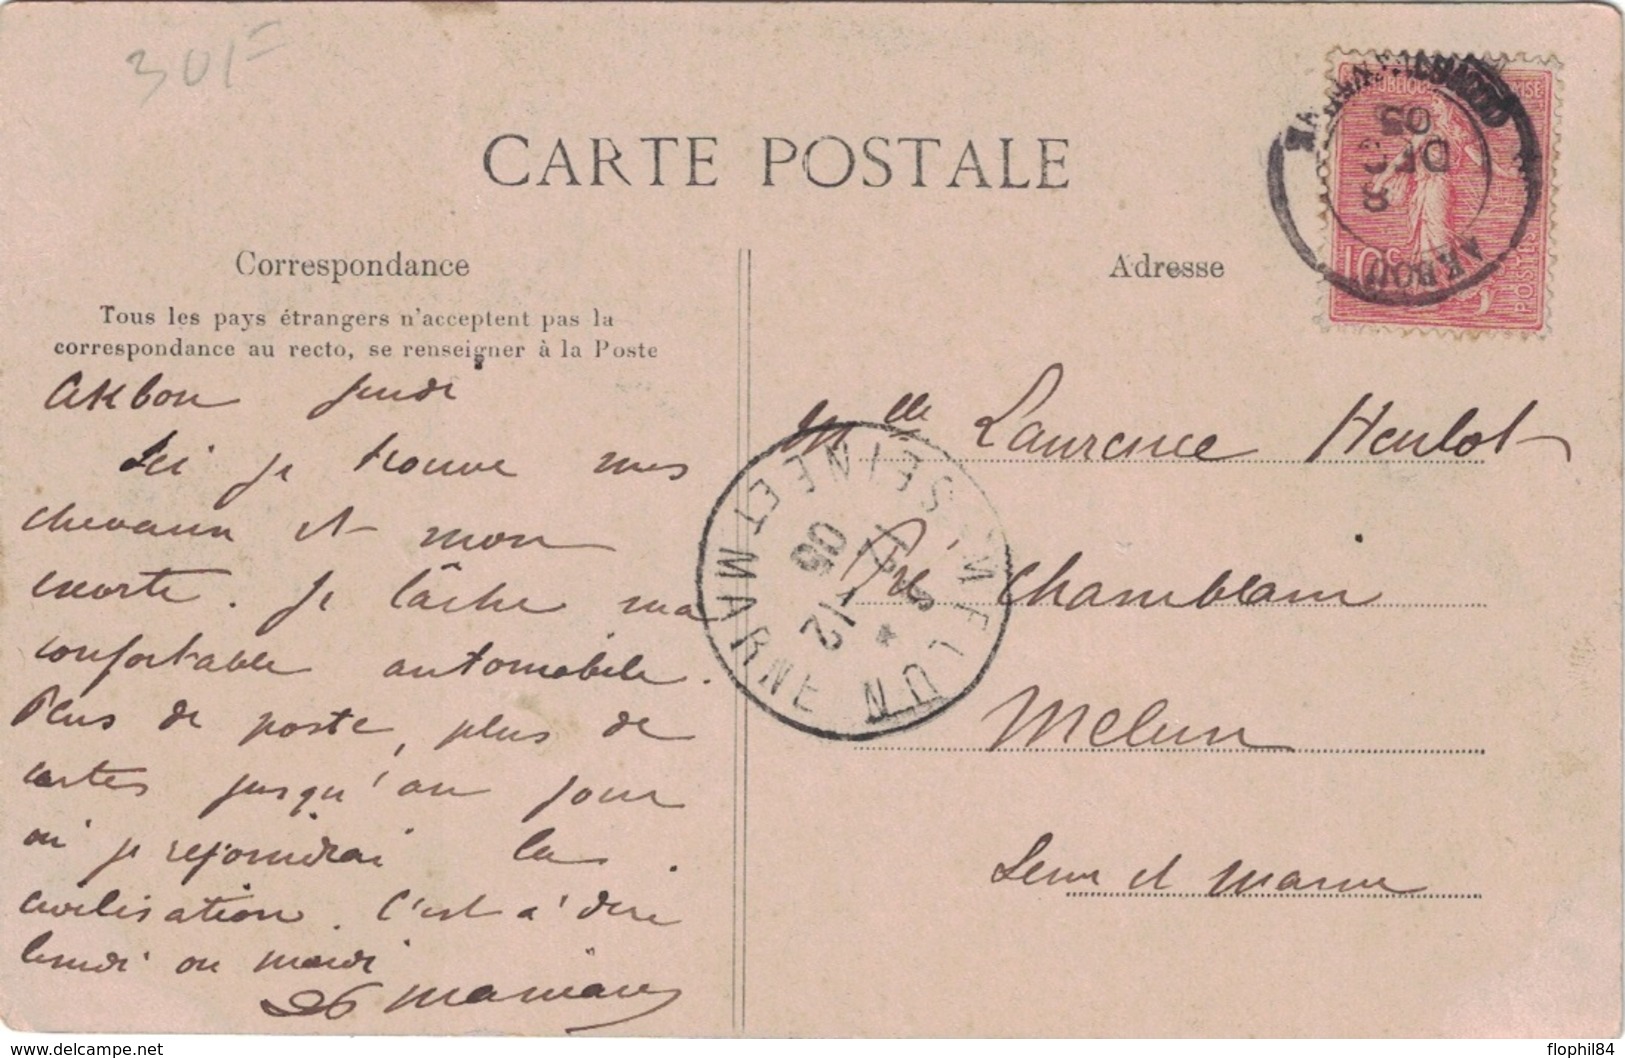 301=
CARTE POSTALE
Correspondance
Tous les pays étrangers n'acceptent pas la
correspondance au recto, se renseigner à la Poste
Akbou jeudi
Ici je trouve mes
chevaux et mon
escorte. Je lâche ma
confortable automobile.
Plus de poste, plus de
cartes jusqu'au jour
où je rejoindrai la
civilisation. C'est à dire
lundi ou mardi
Adresse
Mlle Laurence Heulot
Pré Chamblain
Melun
Seine et Marne
AKBOU
8
DEC
05
10c
POSTES
MELUN
SEINE ET MARNE
12
05
www.delcampe.net
flophil84